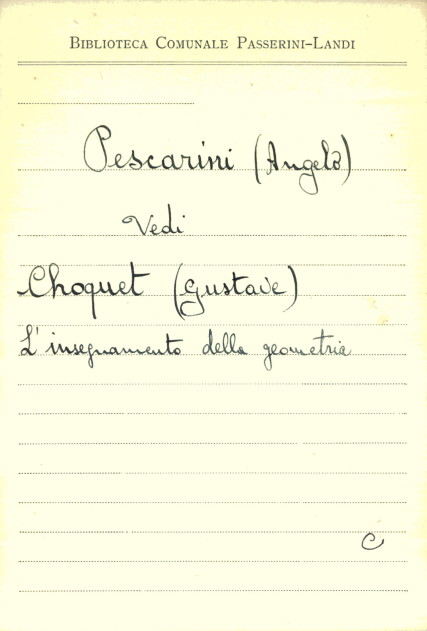 Biblioteca Comunale Passerini-Landi
Pescarini (Angelo)
Vedi
Choquet (Gustave)
L'insegnamento della geometria
C